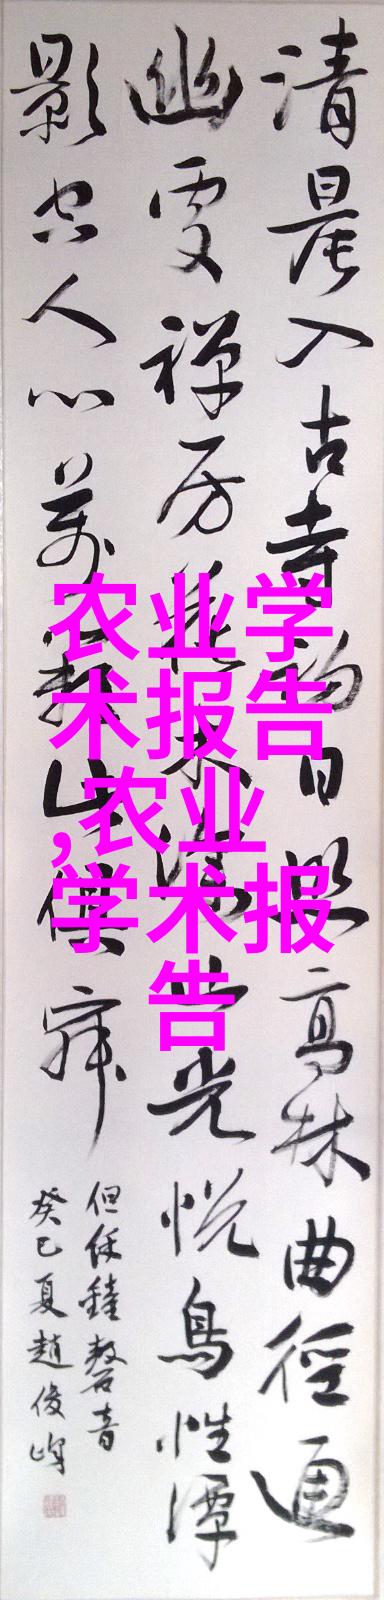 清晨入古寺初日照高林曲徑通
幽处禅房花木深山光悦鳥性潭
影空人心萬籁此俱寂
但馀鐘磬音
癸巳夏趙俊峰
农业学
术报告
,农业
学术报
告